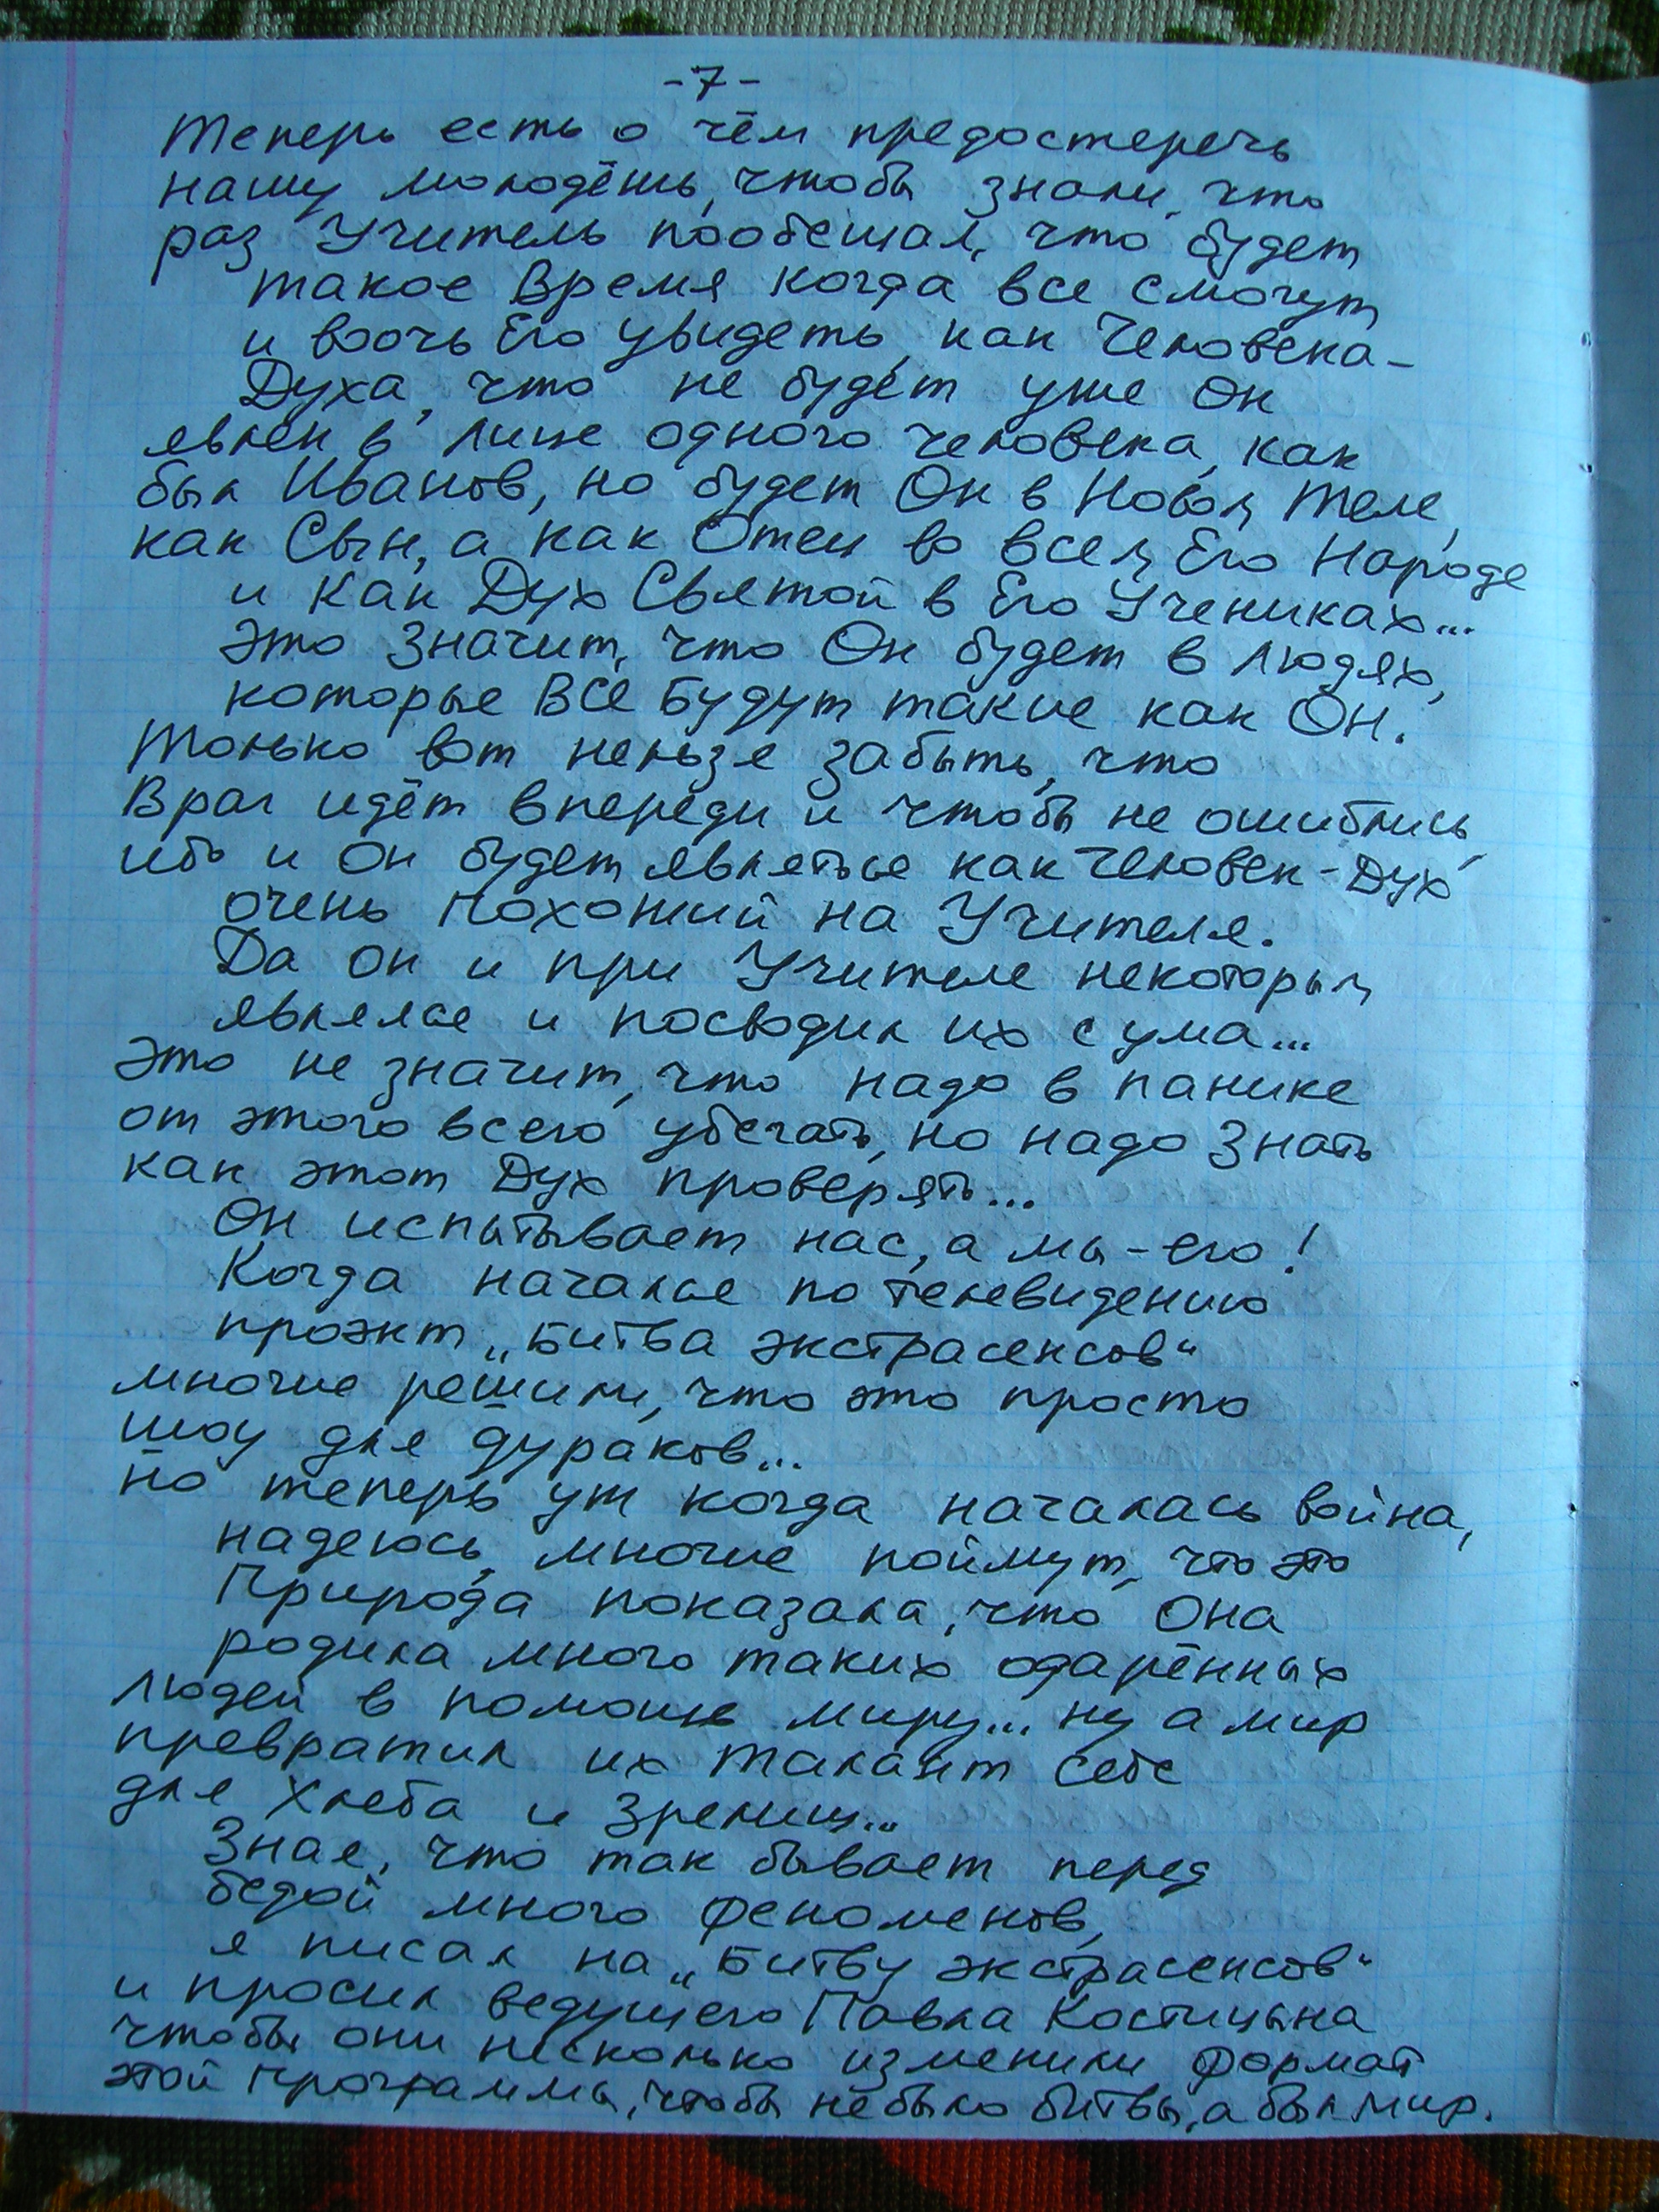 -7-
Теперь есть о чём предостеречь
нашу молодёжь, чтобы знали, что
раз Учитель пообещал, что будет
такое Время когда все смогут
и воочь Его увидеть, как Человека-
Духа, что не будет уже Он
явлен в лице одного человека, как
был Иванов, но будет Он в Новом Теле,
как Сын, а как Отец во всем Его Народе
и как Дух Святой в Его Учениках...
Это значит, что Он будет в людях,
которые ВСЕ будут такие как Он.
Только вот нельзя забыть, что
Враг идёт впереди и чтобы не ошиблись,
ибо и он будет являться как Человек-Дух
очень похожий на Учителя.
Да он и при Учителе некоторым
являлся и посводил их с ума...
Это не значит, что надо в панике
от этого всего убегать, но надо знать
как этот Дух проверять...
Он испытывает нас, а мы - его!
Когда начался по телевидению
проэкт „Битва экстрасенсов“
многие решили, что это просто
шоу для дураков...
но теперь уж когда началась война,
надеюсь, многие поймут, что это
Природа показала, что Она
родила много таких одарённых
людей в помощь миру... ну а мир
превратил их талант себе
для хлеба и зрелищ...
Зная, что так бывает перед
бедой много феноменов,
я писал на „Битву экстрасенсов“
и просил ведущего Павла Костицына
чтобы они несколько изменили формат
этой программы, чтобы не было битвы, а был мир.